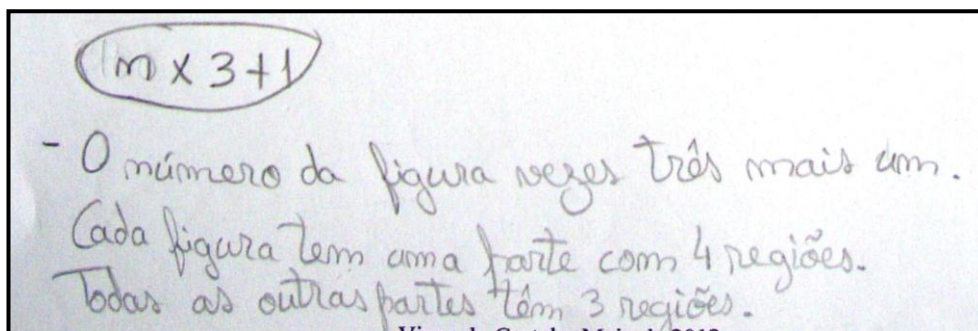 n x 3 + 1
- O número da figura vezes três mais um.
Cada figura tem uma parte com 4 regiões.
Todas as outras partes têm 3 regiões.